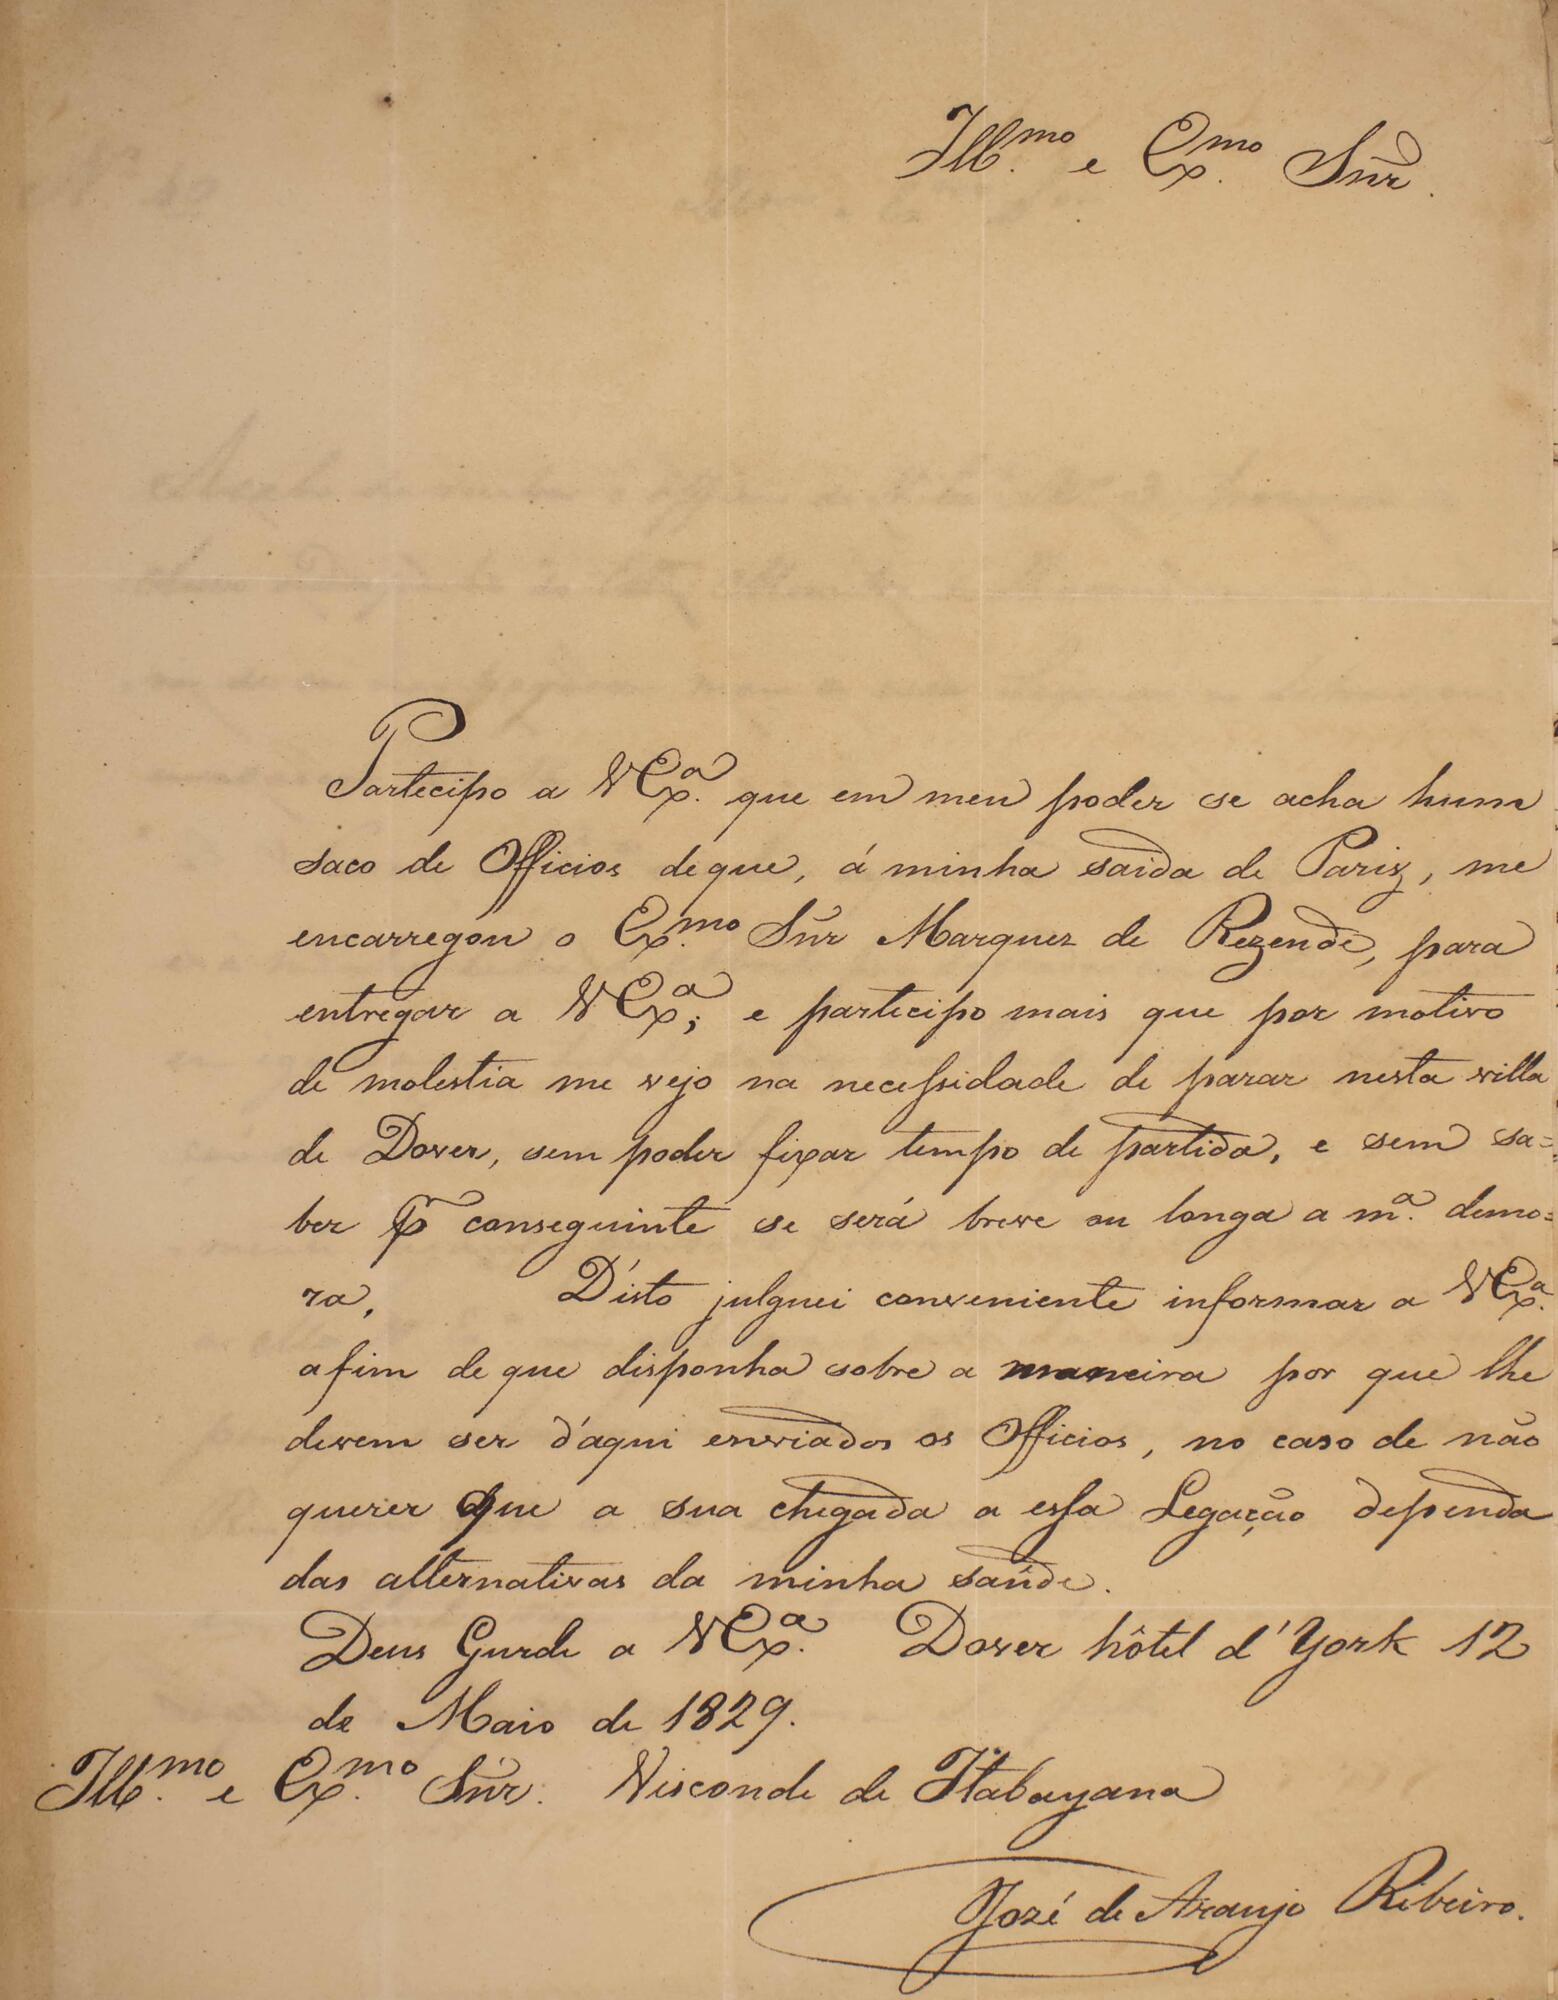 Ill.mo e Ex.mo Snr.
Partecipo a VEx.a que em meu poder se acha hum
saco de Officios de que, á minha saida de Pariz, me
encarregou o Ex.mo Snr Marquez de Rezende, para
entregar a VEx.a; e partecipo mais que por motivo
de molestia me vejo na necessidade de parar nesta villa
de Dover, sem poder fixar tempo de partida, e sem sa=
ber p.r conseguinte se será breve ou longa a m.a demo=
ra. D'isto julguei conveniente informar a VEx.a
afim de que disponha sobre a maneira por que lhe
devem ser d'aqui enviados os Officios, no caso de não
querer que a sua chegada a essa Legação dependa
das alternativas da minha saúde.
Deus Gurde a VEx.a Dover hôtel d'York 12
de Maio de 1829.
Ill.mo e Ex.mo Snr. Visconde de Itabayana
Jozé de Araujo Ribeiro.